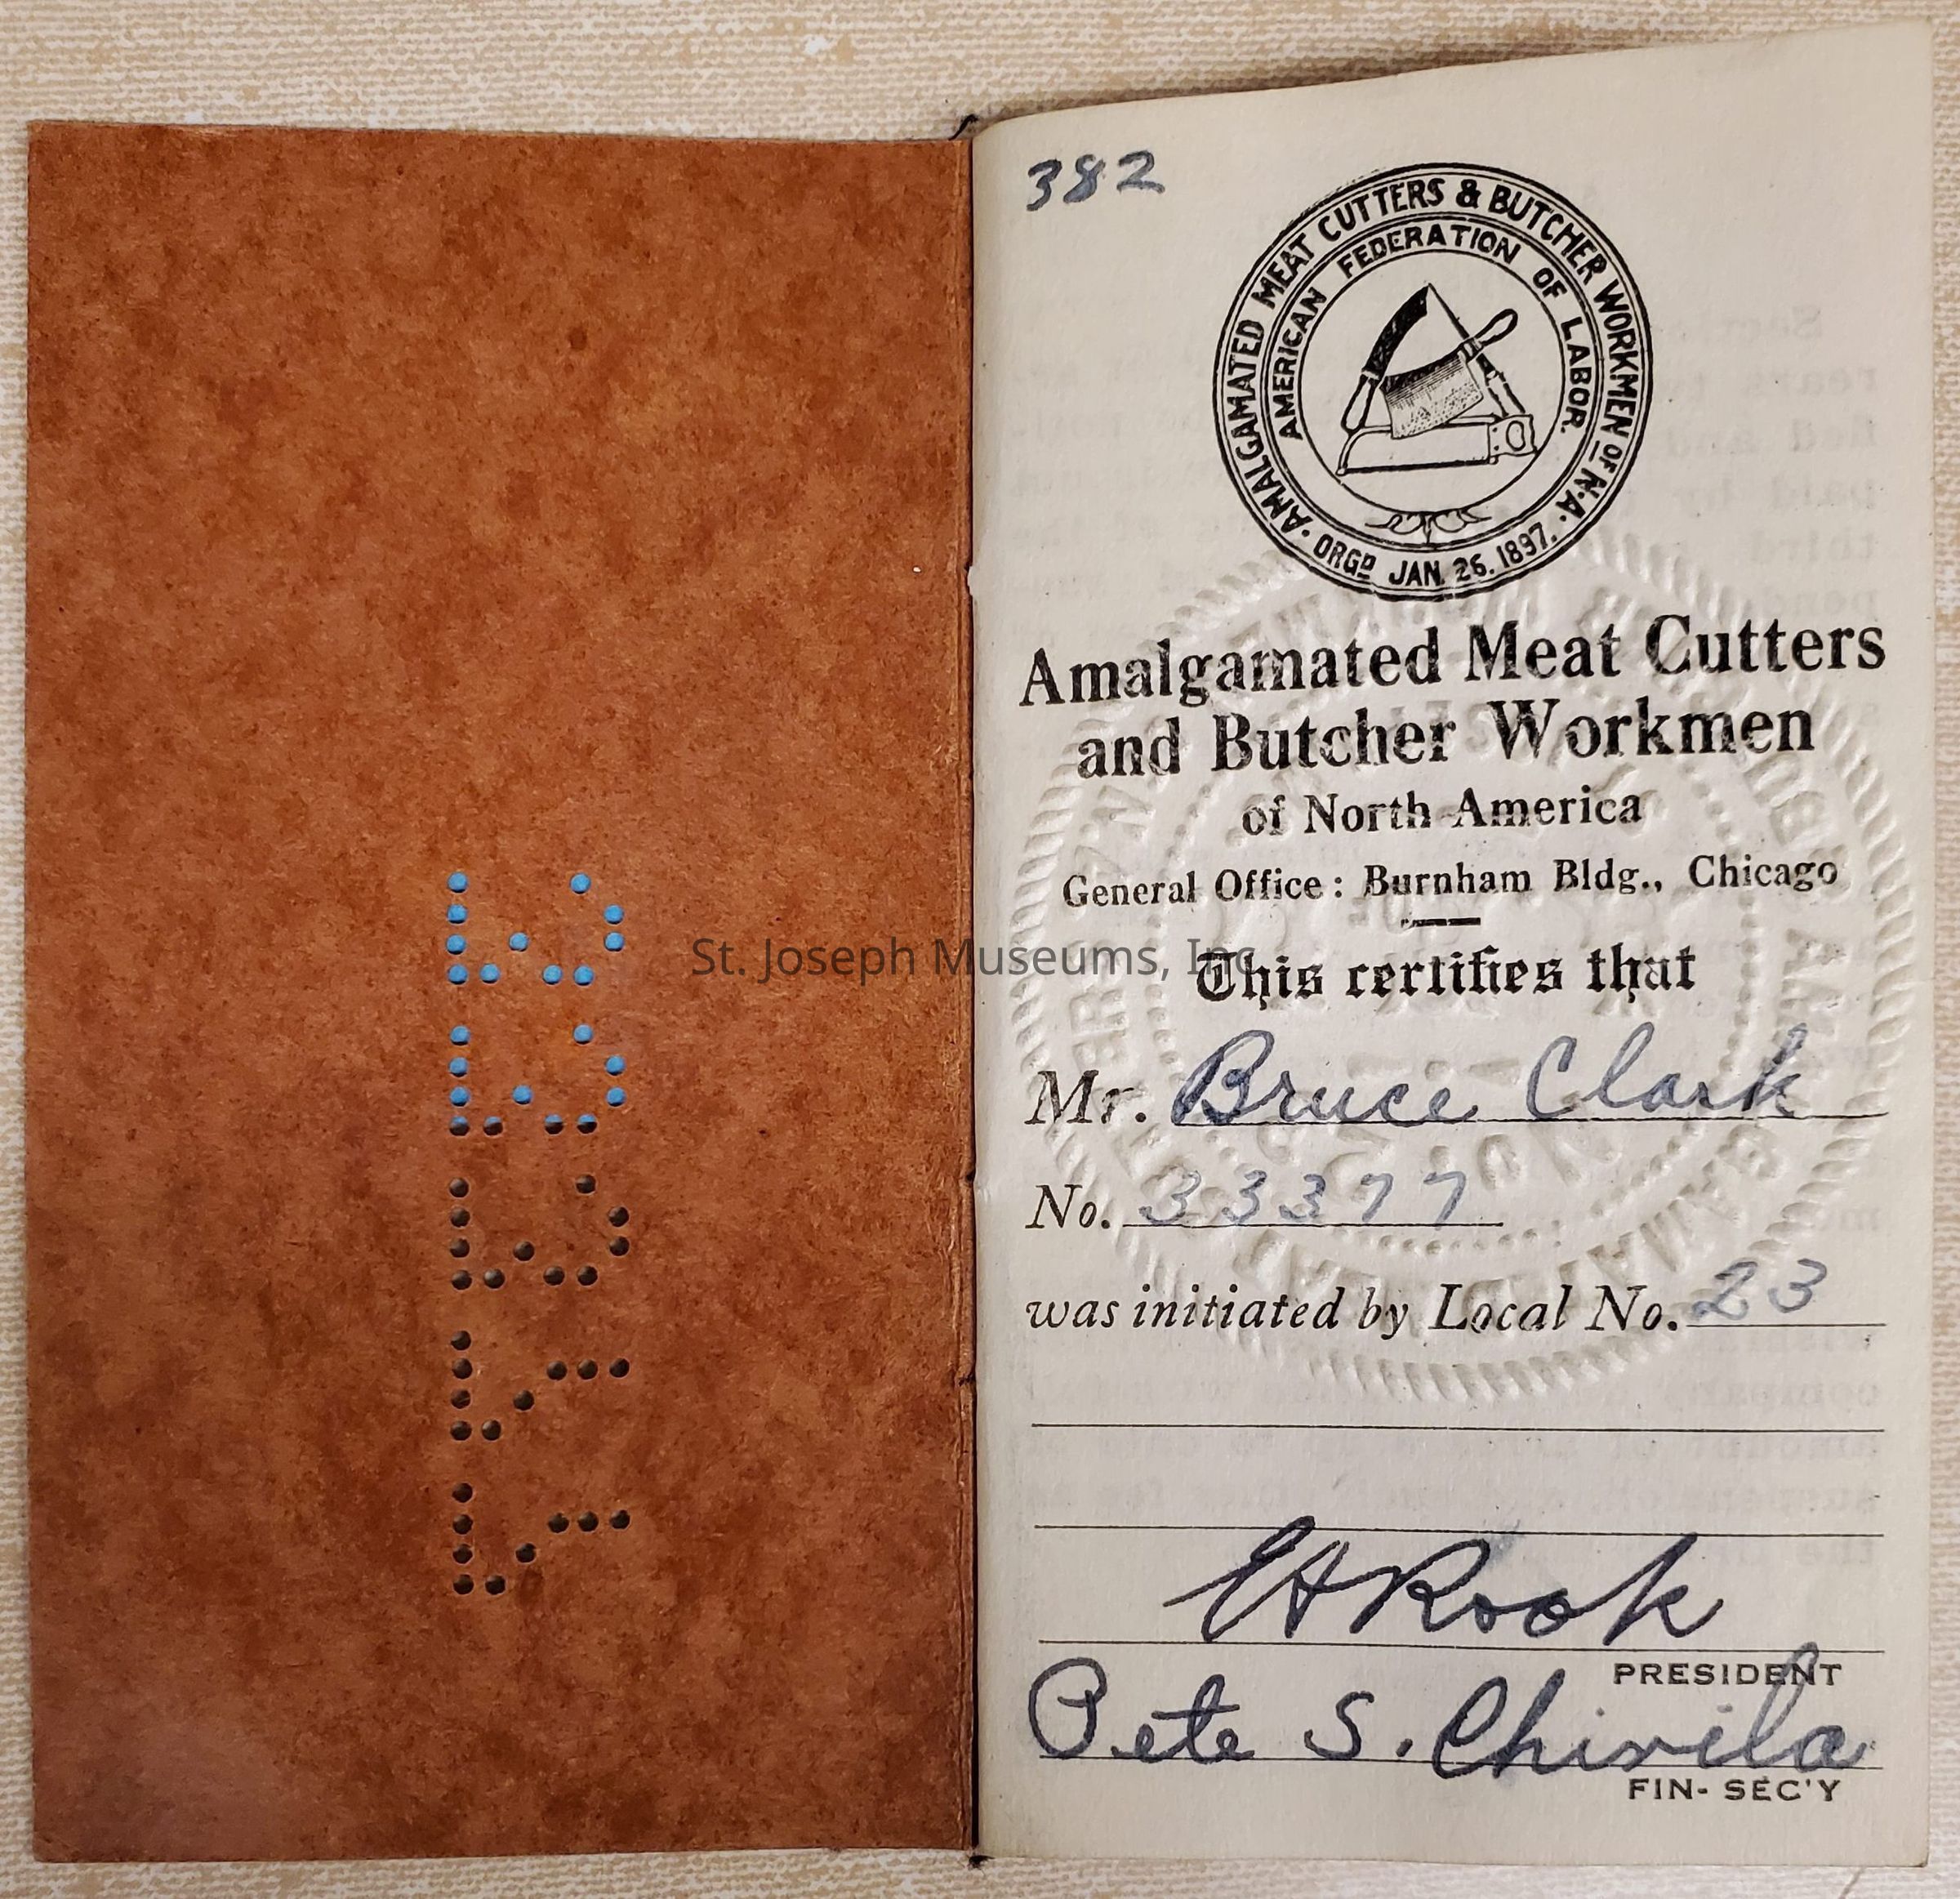 33377
St. Joseph Museums, Inc
382
AMALGAMATED MEAT CUTTERS & BUTCHER WORKMEN OF N.A.
AMERICAN FEDERATION OF LABOR.
ORGD JAN. 26. 1897.
Amalgamated Meat Cutters
and Butcher Workmen
of North America
General Office: Burnham Bldg., Chicago
This certifies that
Mr. Bruce Clark
No. 33377
was initiated by Local No. 23
E H Rook
PRESIDENT
Pete S. Chirila
FIN- SEC'Y